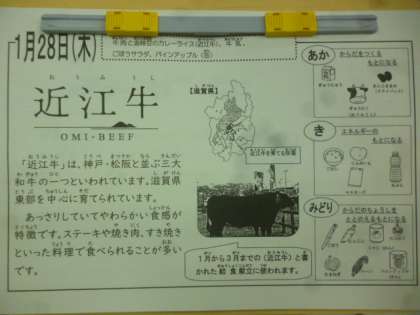 1月28日(木)
ごぼうサラダ、パインアップル
おうみうし
近江牛
OMI-BEEF
「近江牛」は、神戸・松阪と並ぶ三大
和牛の一つといわれています。滋賀県
東部を中心に育てられています。
あっさりしていてやわらかい食感が
特徴です。ステーキや焼き肉、すき焼き
といった料理で食べられることが多い
です。
【滋賀県】
近江牛を育てる地域
1月から3月までの(近江牛)と書
かれた給食献立に使われます。
あか
からだをつくる
もとになる
き
エネルギーの
もとになる
みどり
からだのちょうしを
ととのえるもとになる